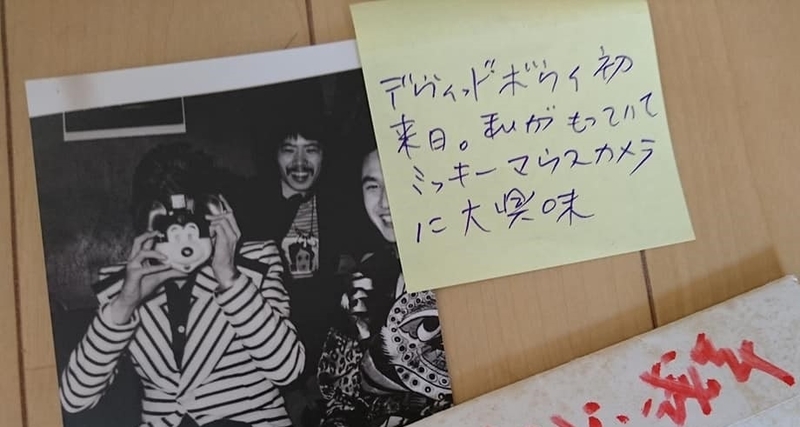 デヴィッドボウイ初
来日。私がもっていて
ミッキーマウスカメラ
に大興味